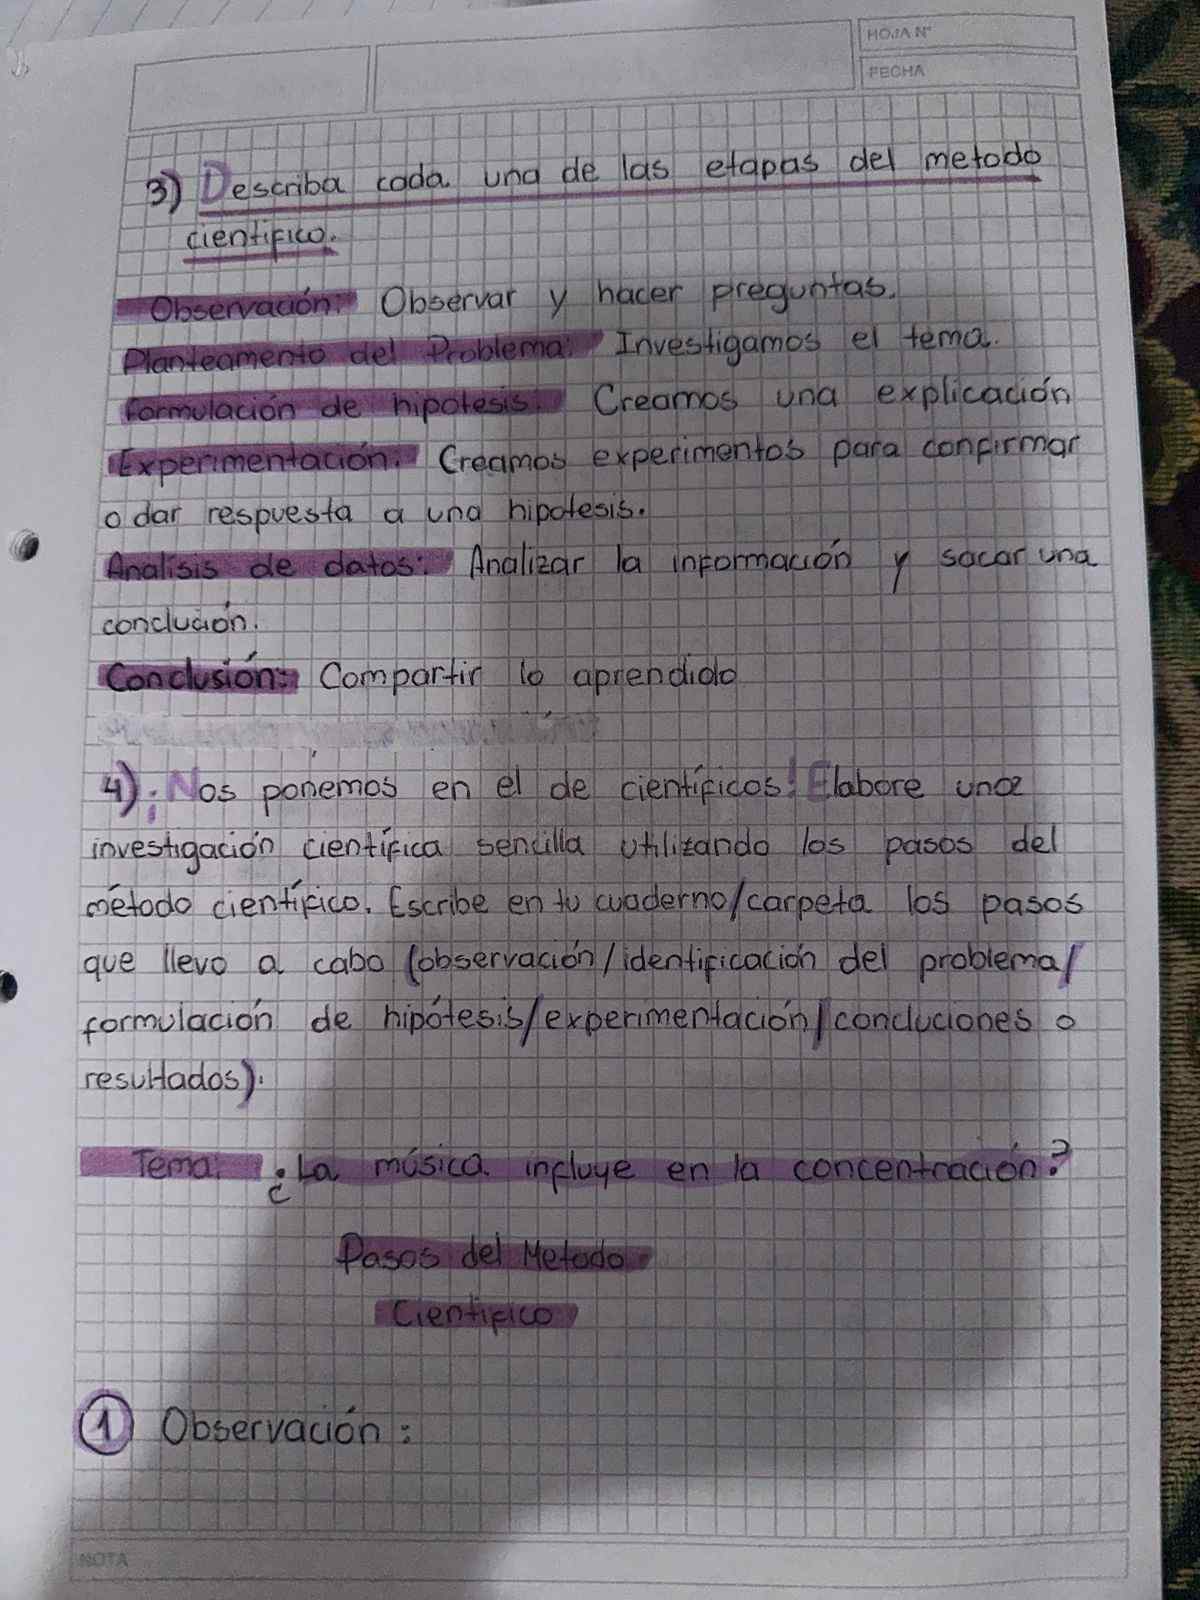 HOJA N°
FECHA
3) Describa cada una de las etapas del metodo
cientifico.
Observación: Observar y hacer preguntas.
Planteamento del Problema: Investigamos el tema.
formulación de hipotesis: Creamos una explicación
Experimentación: Creamos experimentos para confirmar
o dar respuesta a una hipotesis.
Analisis de datos: Analizar la información y sacar una
conclución.
Conclusión: Compartir lo aprendido
4) ¡Nos ponemos en el de científicos! Elabore una
investigación científica sencilla utilizando los pasos del
método científico. Escribe en tu cuaderno/carpeta los pasos
que llevo a cabo (observación/identificación del problema/
formulación de hipótesis/experimentación/concluciones o
resultados).
Tema: ¿La música influye en la concentración?
Pasos del Metodo
Cientifico
1 Observación:
NOTA